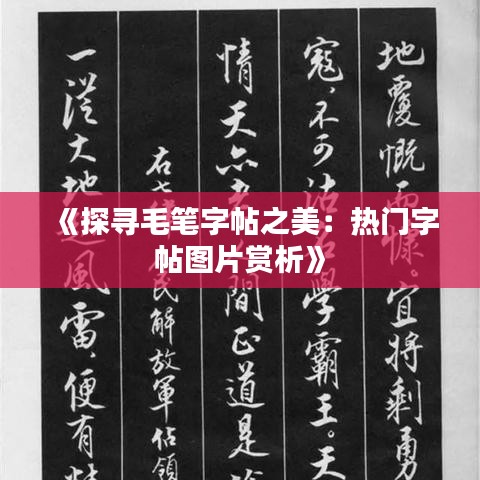 《探寻毛笔字帖之美：热门字
帖图片赏析》
地覆慨慷。宜将剩勇
寇，不可沽名學霸王。天
情天亦老間正道是
右七律民解放軍佔領
一從大地起風雷，便有